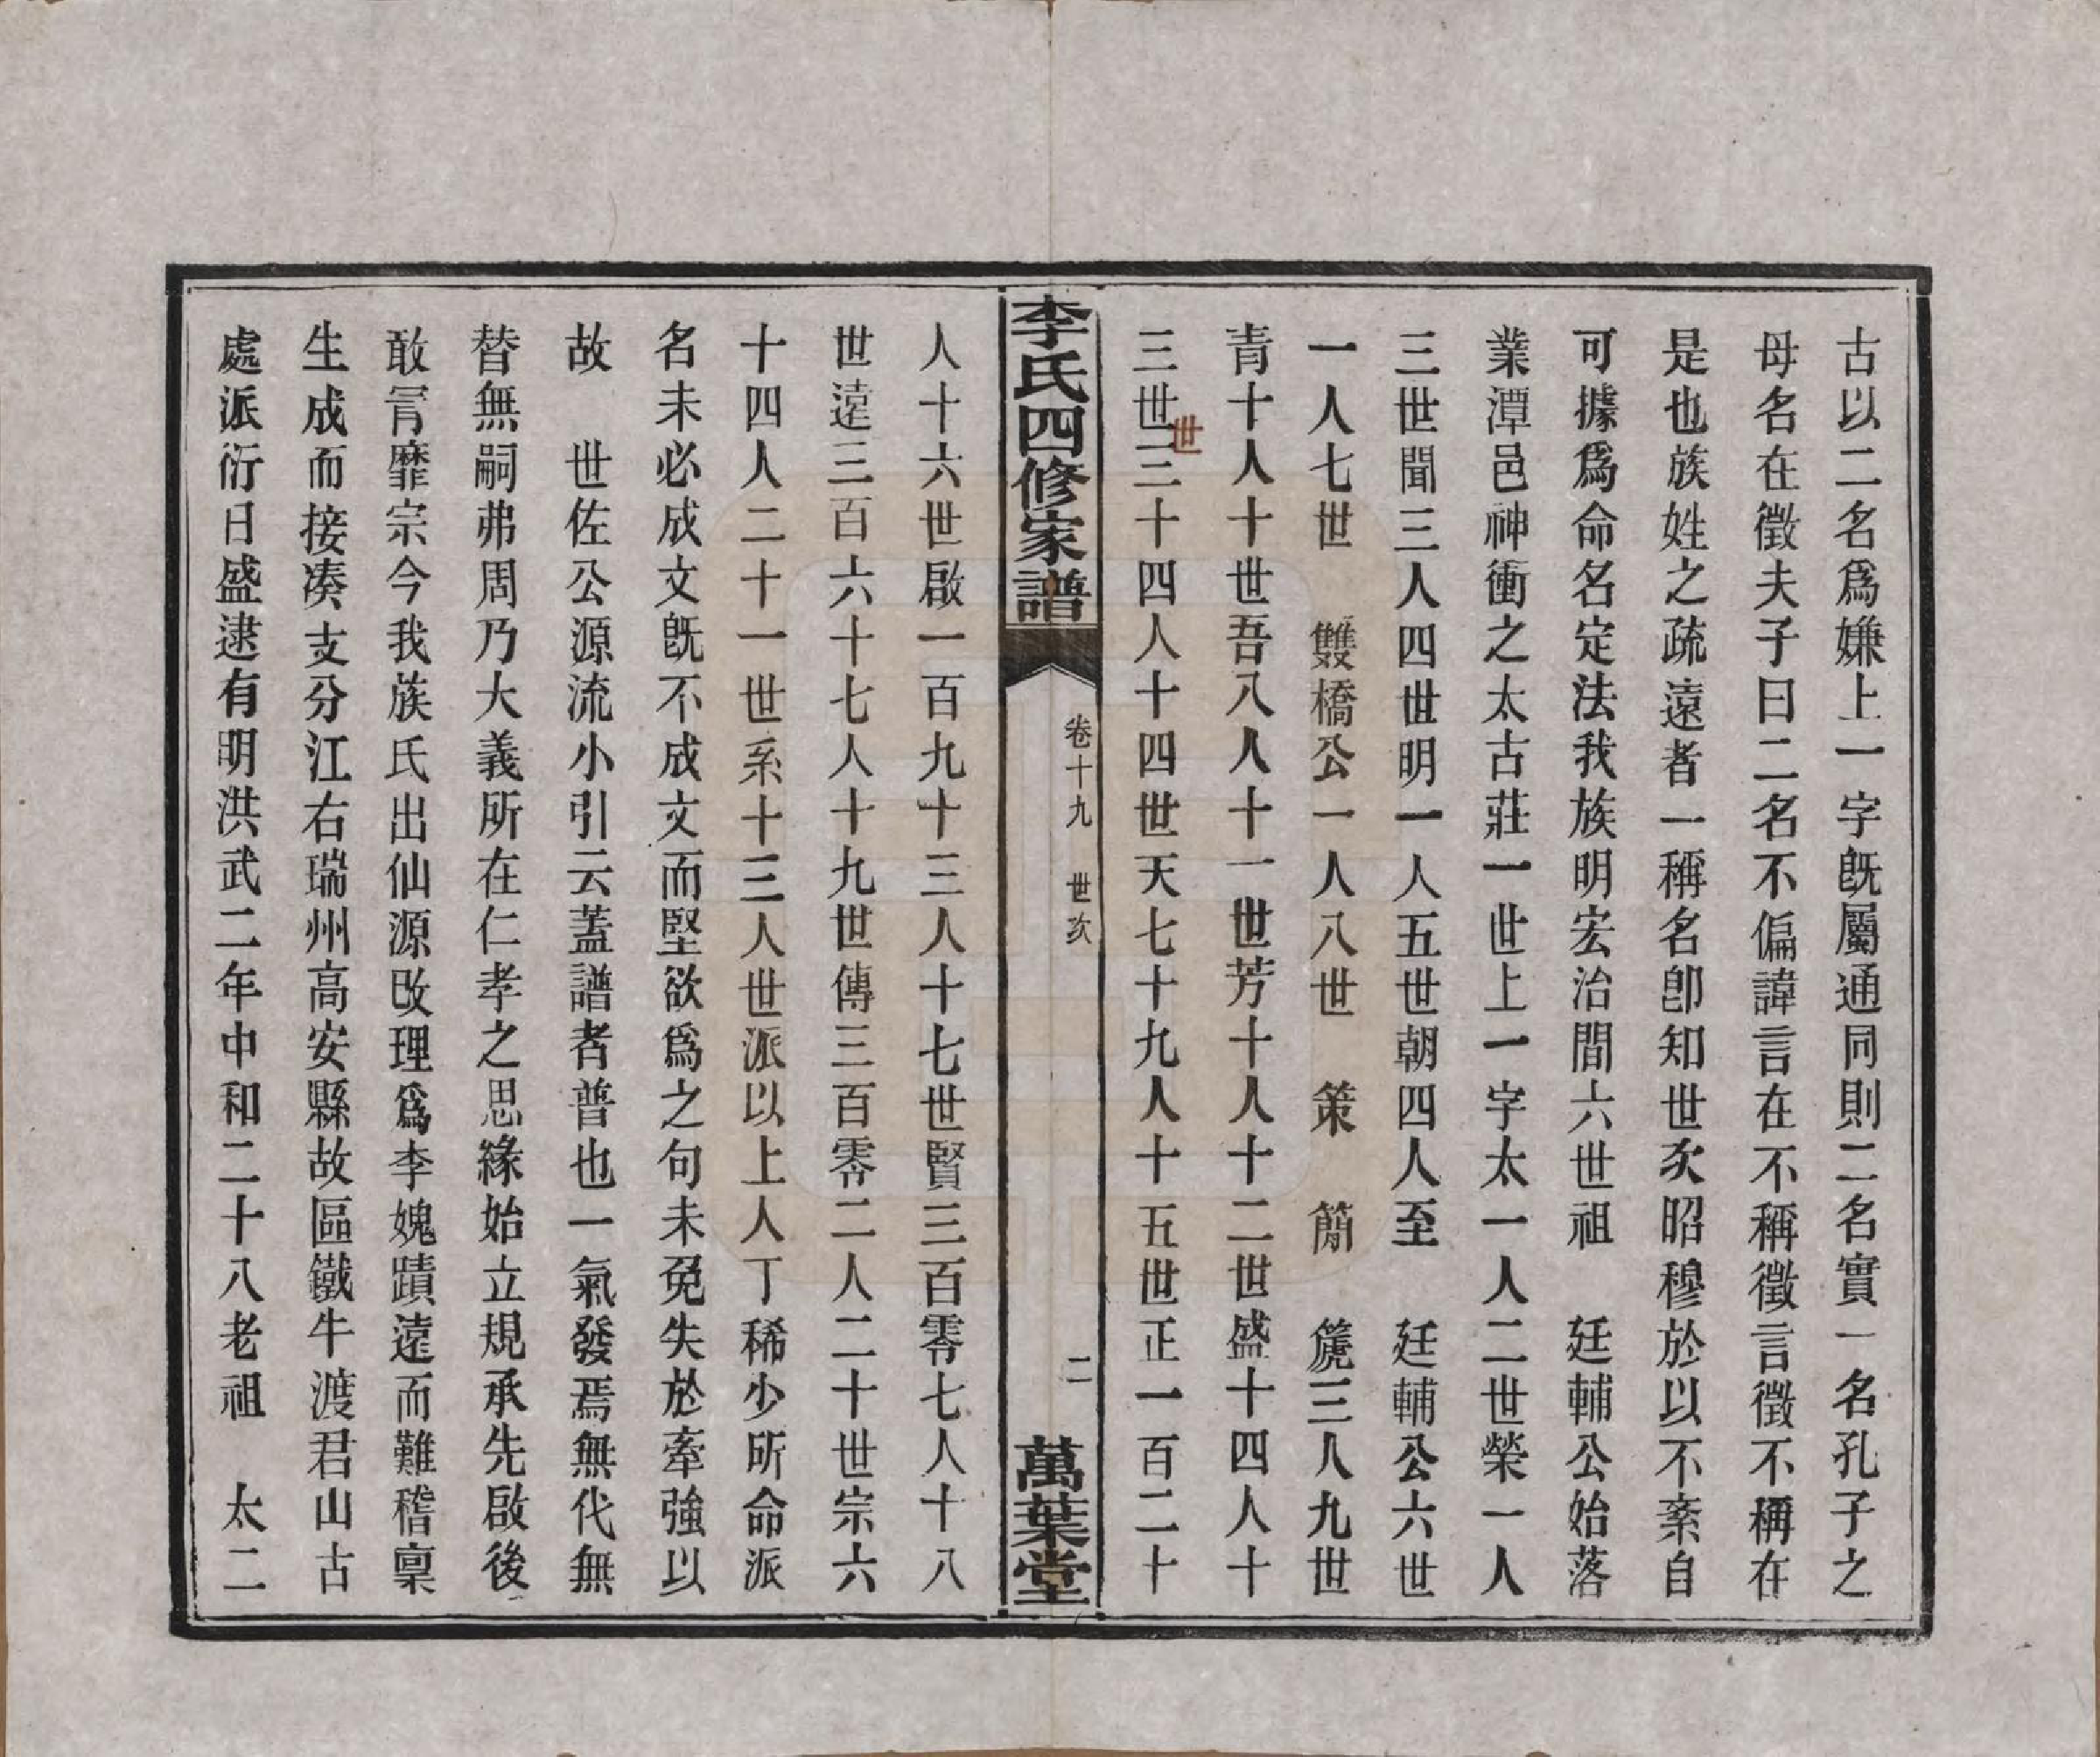 古以二名爲嫌上一字旣屬通同則二名實一名孔子之
母名在徵夫子曰二名不偏諱言在不稱徵言徵不稱在
是也族姓之疏遠者一稱名卽知世次昭穆於以不紊自
可據爲命名定法我族明宏治間六世祖　廷輔公始落
業潭邑神衝之太古莊一世上一字太一人二世榮一人
三世聞三人四世明一人五世朝四人至　廷輔公六世
一人七世　雙橋公一人八世　策　簡　篪三人九世
青十人十世吾八人十一世芳十人十二世盛十四人十
三世三十四人十四世天七十九人十五世正一百二十
世
李氏四修家譜
卷十九　世次
二
萬葉堂
人十六世啟一百九十三人十七世賢三百零七人十八
世遠三百六十七人十九世傳三百零二人二十世宗六
十四人二十一世系十三人世派以上人丁稀少所命派
名未必成文旣不成文而堅欲爲之句未免失於牽強以
故　世佐公源流小引云蓋譜者普也一氣發焉無代無
替無嗣弗周乃大義所在仁孝之思緣始立規承先啟後
敢冐靡宗今我族氏出仙源改理爲李媿蹟遠而難稽稟
生成而接凑支分江右瑞州高安縣故區鐵牛渡君山古
處派衍日盛逮有明洪武二年中和二十八老祖　太二